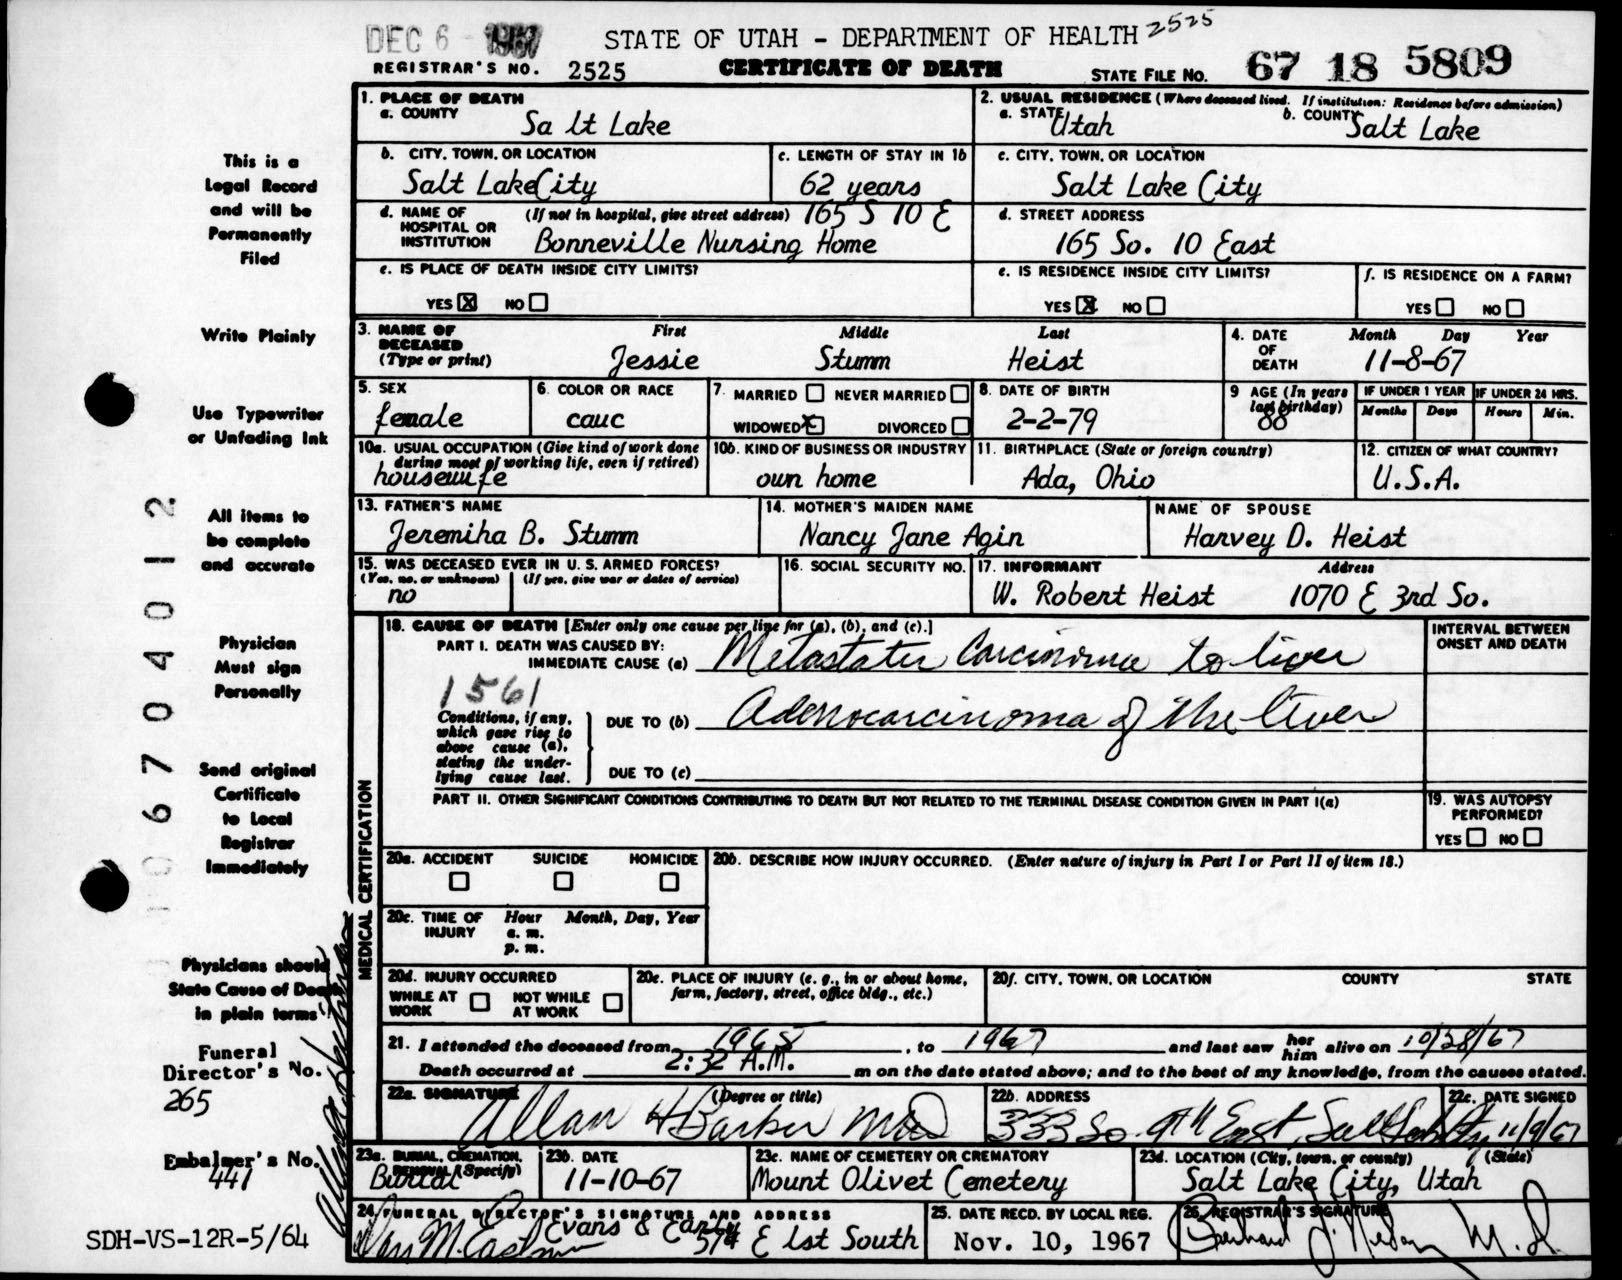 DEC 6 - 1967
STATE OF UTAH - DEPARTMENT OF HEALTH 2525
REGISTRAR'S NO. 2525
CERTIFICATE OF DEATH
STATE FILE NO. 67 18 5809
1. PLACE OF DEATH
a. COUNTY
Sa lt Lake
2. USUAL RESIDENCE (Where deceased lived. If institution: Residence before admission)
a. STATE Utah
b. COUNTY Salt Lake
b. CITY, TOWN, OR LOCATION
Salt Lake City
c. LENGTH OF STAY IN 1b
62 years
c. CITY, TOWN, OR LOCATION
Salt Lake City
d. NAME OF HOSPITAL OR INSTITUTION (If not in hospital, give street address) 165 S 10 E
Bonneville Nursing Home
d. STREET ADDRESS
165 So. 10 East
e. IS PLACE OF DEATH INSIDE CITY LIMITS?
YES X NO
e. IS RESIDENCE INSIDE CITY LIMITS?
YES X NO
f. IS RESIDENCE ON A FARM?
YES NO
3. NAME OF DECEASED (Type or print)
First Middle Last
Jessie Stumm Heist
4. DATE OF DEATH
Month Day Year
11-8-67
5. SEX
female
6. COLOR OR RACE
cauc
7. MARRIED NEVER MARRIED
WIDOWED X DIVORCED
8. DATE OF BIRTH
2-2-79
9 AGE (In years last birthday)
88
IF UNDER 1 YEAR
Months Days
IF UNDER 24 HRS.
Hours Min.
10a. USUAL OCCUPATION (Give kind of work done during most of working life, even if retired)
housewife
10b. KIND OF BUSINESS OR INDUSTRY
own home
11. BIRTHPLACE (State or foreign country)
Ada, Ohio
12. CITIZEN OF WHAT COUNTRY?
U.S.A.
13. FATHER'S NAME
Jeremiha B. Stumm
14. MOTHER'S MAIDEN NAME
Nancy Jane Agin
NAME OF SPOUSE
Harvey D. Heist
15. WAS DECEASED EVER IN U.S. ARMED FORCES?
(Yes, no, or unknown) (If yes, give war or dates of service)
no
16. SOCIAL SECURITY NO.
17. INFORMANT Address
W. Robert Heist 1070 E 3rd So.
MEDICAL CERTIFICATION
18. CAUSE OF DEATH [Enter only one cause per line for (a), (b), and (c).]
INTERVAL BETWEEN ONSET AND DEATH
PART I. DEATH WAS CAUSED BY:
IMMEDIATE CAUSE (a) Metastatic Carcinoma to liver
1561
Conditions, if any, which gave rise to above cause (a), stating the underlying cause last.
DUE TO (b) Adenocarcinoma of the liver
DUE TO (c)
PART II. OTHER SIGNIFICANT CONDITIONS CONTRIBUTING TO DEATH BUT NOT RELATED TO THE TERMINAL DISEASE CONDITION GIVEN IN PART I(a)
19. WAS AUTOPSY PERFORMED?
YES NO
20a. ACCIDENT SUICIDE HOMICIDE
20b. DESCRIBE HOW INJURY OCCURRED. (Enter nature of injury in Part I or Part II of item 18.)
20c. TIME OF INJURY Hour Month, Day, Year
a. m.
p. m.
20d. INJURY OCCURRED
WHILE AT WORK NOT WHILE AT WORK
20e. PLACE OF INJURY (e. g., in or about home, farm, factory, street, office bldg., etc.)
20f. CITY, TOWN, OR LOCATION COUNTY STATE
21. I attended the deceased from 1965, to 1967 and last saw her him alive on 10/28/67
Death occurred at 2:32 A.M. m on the date stated above; and to the best of my knowledge, from the causes stated.
22a. SIGNATURE (Degree or title)
Allan H Barker MD
22b. ADDRESS
333 So. 9th East, Salt Lake City
22c. DATE SIGNED
11/9/67
23a. BURIAL, CREMATION, REMOVAL (Specify)
Burial
23b. DATE
11-10-67
23c. NAME OF CEMETERY OR CREMATORY
Mount Olivet Cemetery
23d. LOCATION (City, town, or county) (State)
Salt Lake City, Utah
24. FUNERAL DIRECTOR'S SIGNATURE AND ADDRESS
Evans & Early
574 E 1st South
25. DATE RECD. BY LOCAL REG.
Nov. 10, 1967
26. REGISTRAR'S SIGNATURE
M.D.
This is a
Legal Record
and will be
Permanently
Filed
Write Plainly
Use Typewriter
or Unfading Ink
All items to
be complete
and accurate
Physician
Must sign
Personally
Send original
Certificate
to Local
Registrar
Immediately
Physicians should
State Cause of Death
in plain terms
Funeral
Director's No.
265
Embalmer's No.
441
SDH-VS-12R-5/64
0 6 7 0 4 0 1 2